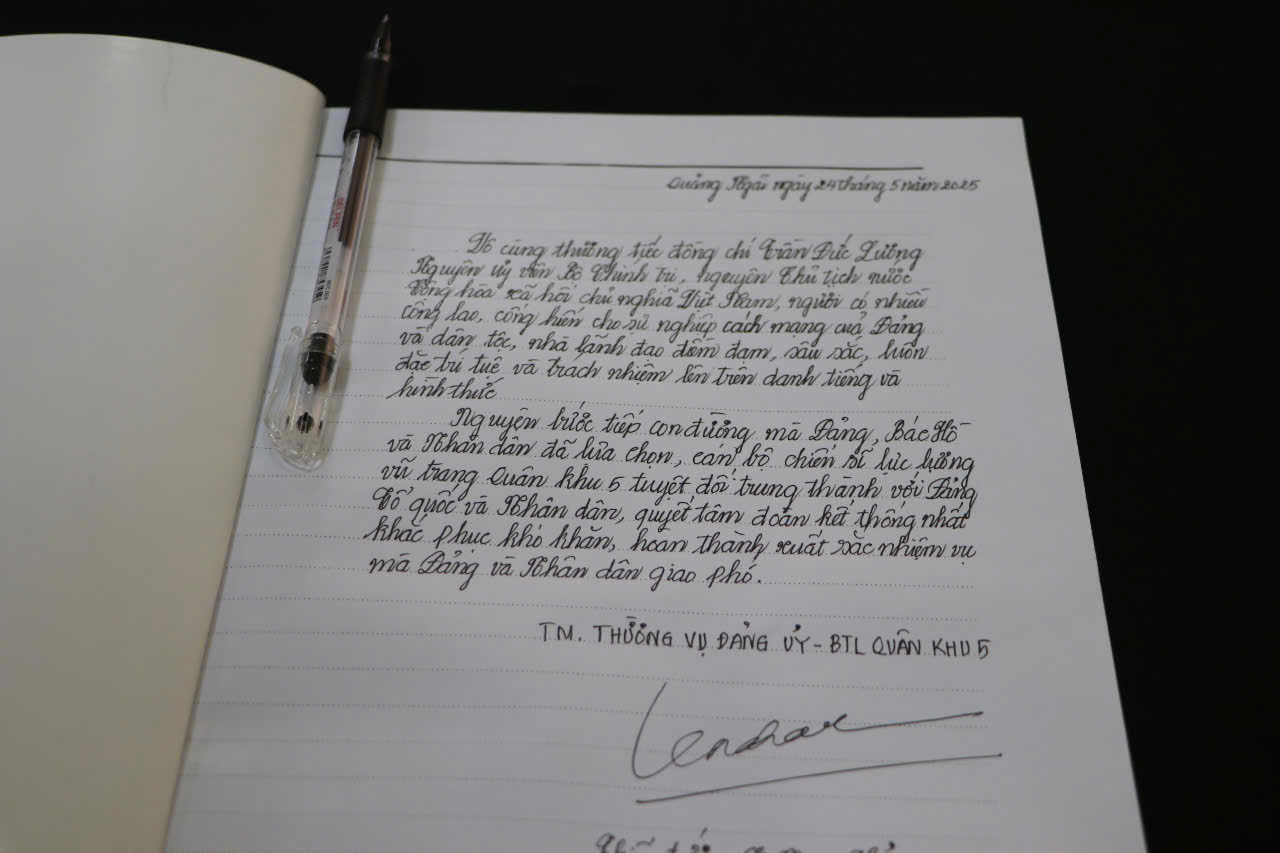 Quảng Ngãi ngày 24 tháng 5 năm 2025
Vô cùng thương tiếc đồng chí Trần Đức Lương
Nguyên Uỷ viên Bộ Chính trị, nguyên Chủ tịch nước
Cộng hòa xã hội chủ nghĩa Việt Nam, người có nhiều
công lao, cống hiến cho sự nghiệp cách mạng của Đảng
và dân tộc, nhà lãnh đạo điềm đạm, sâu sắc, luôn
đặc trí tuệ và trách nhiệm lên trên danh tiếng và
hình thức
Nguyện bước tiếp con đường mà Đảng, Bác Hồ
và Nhân dân đã lựa chọn, cán bộ chiến sĩ lực lượng
vũ trang Quân khu 5 tuyệt đối trung thành với Đảng
Tổ quốc và Nhân dân, quyết tâm đoàn kết thống nhất
khắc phục khó khăn, hoàn thành xuất sắc nhiệm vụ
mà Đảng và Nhân dân giao phó.
TM. THƯỜNG VỤ ĐẢNG ỦY - BTL QUÂN KHU 5